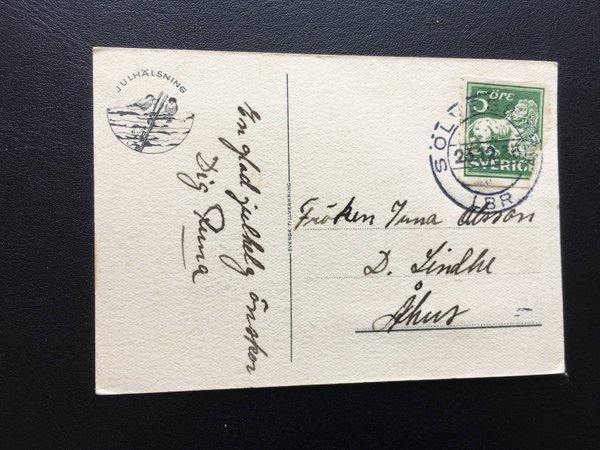 JULHÄLSNING
En glad julhelg önskar
Dig Runa
SVENSK TILLVERKNING
5 ÖRE
SVERIGE
LBR
Fröken Juna Olsson
D. Lindhe
Åhus